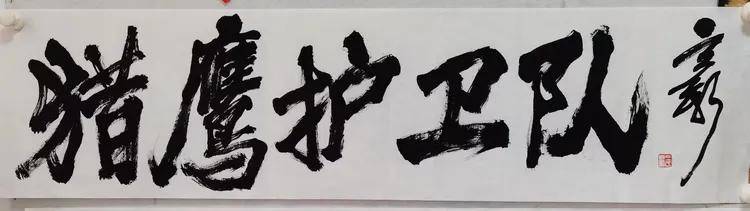 猎鹰护卫队